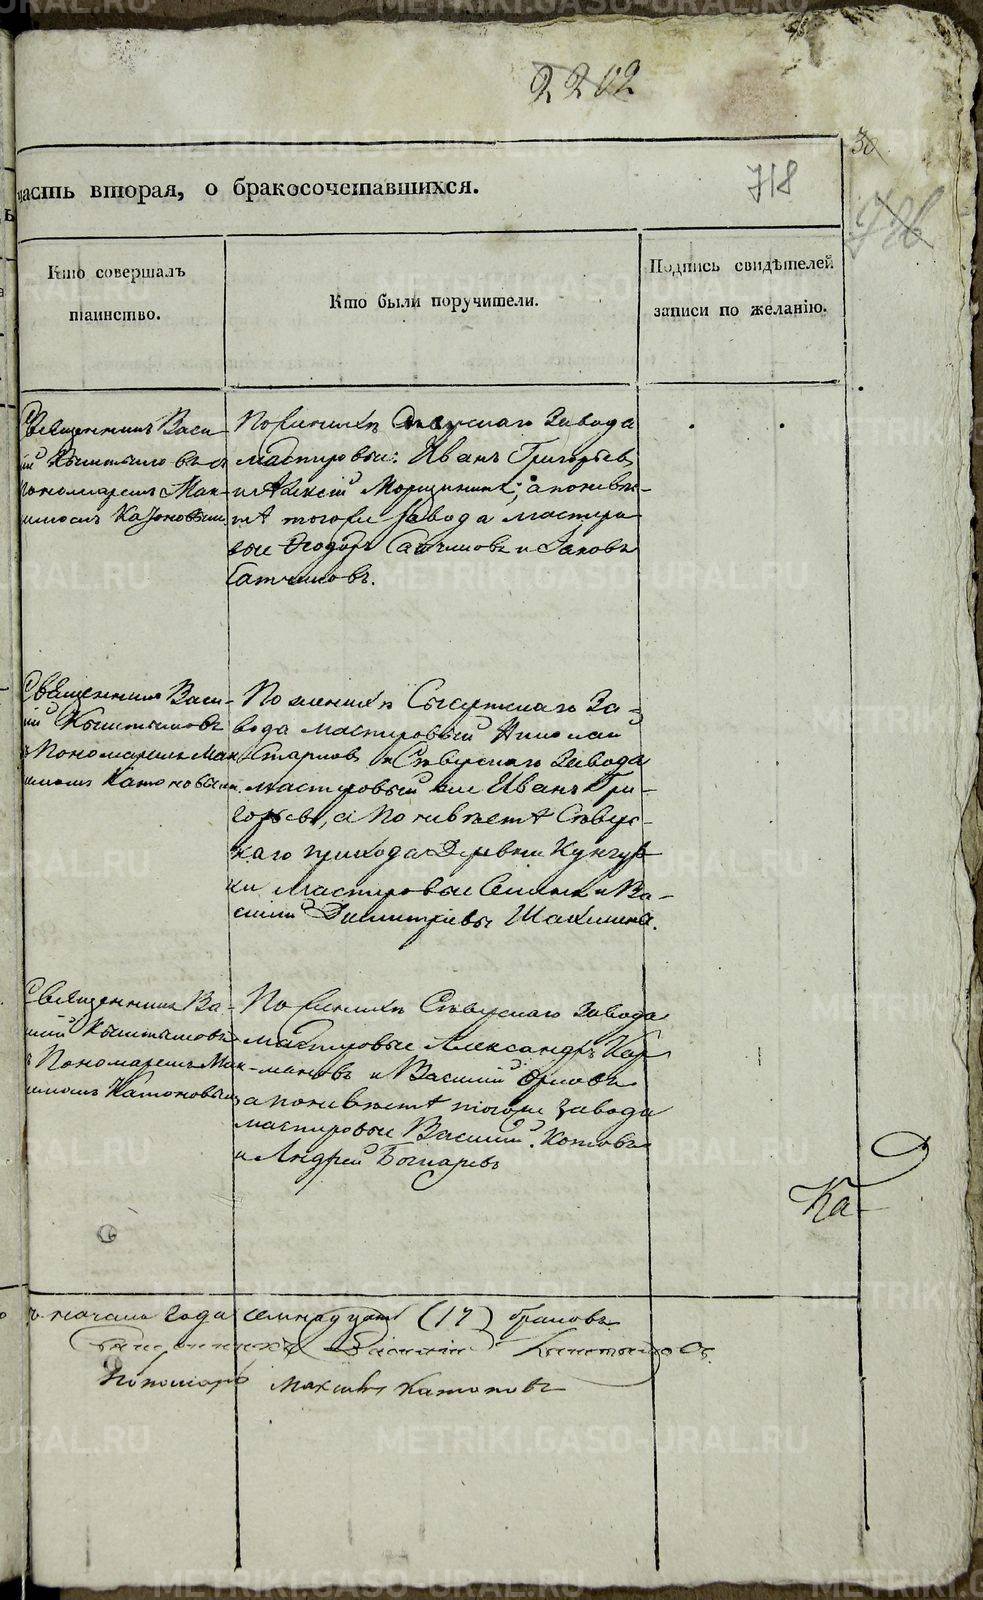 2202
30
718
часть вторая, о бракосочетавшихся.
Кто совершалъ
таинство.
Кто были поручители.
Подпись свидѣтелей
записи по желанію.
Священникъ Васи-
лій Кыштымовъ съ
пономаремъ Мак-
симомъ Катоновымъ
По женихѣ Сѣверскаго Завода
мастеровые: Иванъ Григорьевъ
и Алексій Морщининъ; а по невѣс-
тѣ тогоже Завода мастеро
вые Ѳеодоръ и Іаковъ
Священникъ Васи-
лій Кыштымовъ
Пономаремъ Мак
симомъ Катоновымъ
По женихѣ Сысертскаго За-
вода мастеровый Николай
Старковъ и Сѣверскаго Завода
мастеровый Иванъ Гри-
горьевъ, а по невѣстѣ Сѣверс-
каго прихода Деревни Кунгур
ки мастеровые Семенъ и Ва-
силій Димитріевы
Священникъ Ва-
силій Кыштымовъ
Пономаремъ Мак
симомъ Катоновымъ
По женихѣ Сѣверскаго Завода
мастеровые Александръ Кар
мановъ и Василій Орловъ
а по невѣстѣ тогоже Завода
мастеровые Василій Котовъ
и Андрей Бочкаревъ
Ка-
ъ начала года семнадцать (17) браковъ
Священникъ Василій Кыштымовъ
Пономарь Максимъ Катоновъ
METRIKI.GASO-URAL.RU